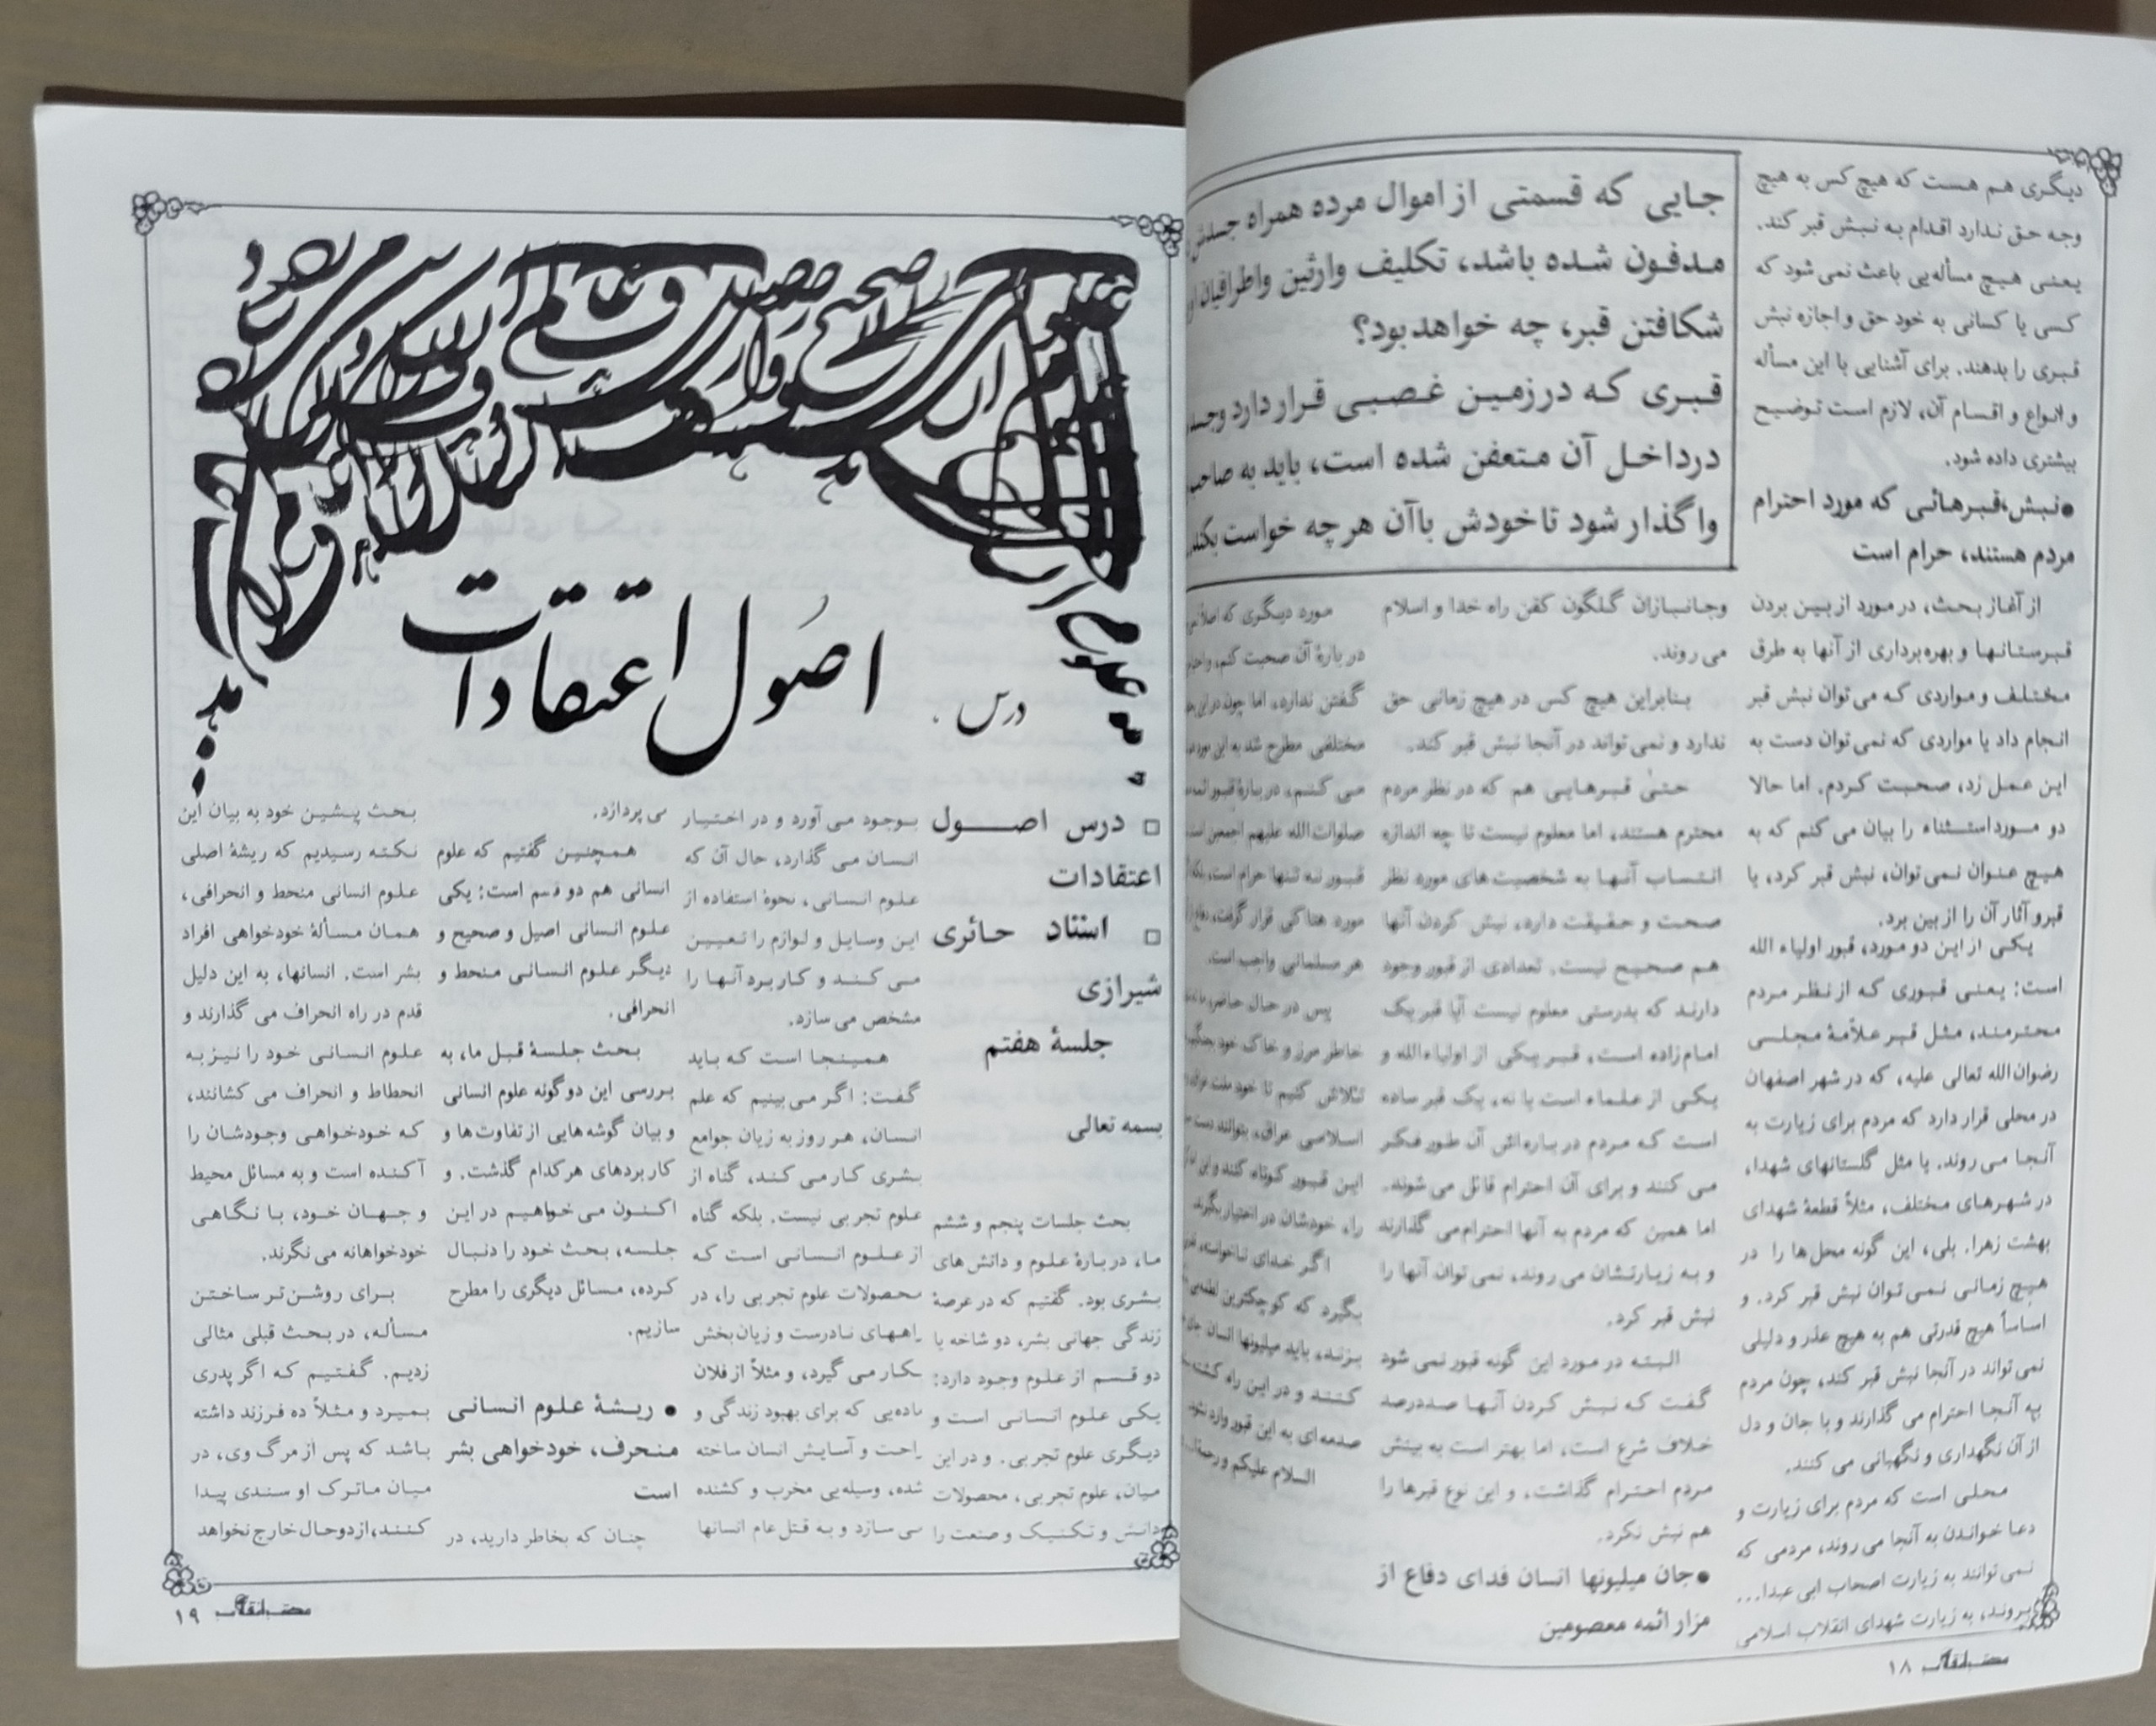 دیگری هم هست که هیچ کس به هیچ
وجه حق ندارد اقدام به نبش قبر کند.
یعنی هیچ مسأله‌یی باعث نمی شود که
کسی یا کسانی به خود حق و اجازه نبش
قبری را بدهند. برای آشنایی با این مسأله
و انواع و اقسام آن، لازم است توضیح
بیشتری داده شود.
●نبش قبرهائی که مورد احترام
مردم هستند، حرام است
از آغاز بحث، در مورد از بین بردن
قبرستانها و بهره برداری از آنها به طرق
مختلف و مواردی که می توان نبش قبر
انجام داد یا مواردی که نمی توان دست به
این عمل زد، صحبت کردم. اما حالا
دو مورد استثناء را بیان می کنم که به
هیچ عنوان نمی توان، نبش قبر کرد، یا
قبر و آثار آن را از بین برد.
یکی از این دو مورد، قبور اولیاء الله
است؛ یعنی قبوری که از نظر مردم
محترمند، مثل قبر علاّمۀ مجلسی
رضوان الله تعالی علیه، که در شهر اصفهان
در محلی قرار دارد که مردم برای زیارت به
آنجا می روند. یا مثل گلستانهای شهدا،
در شهرهای مختلف، مثلاً قطعۀ شهدای
بهشت زهرا. بلی، این گونه محل ها را در
هیچ زمانی نمی توان نبش قبر کرد. و
اساساً هیچ قدرتی هم به هیچ عذر و دلیلی
نمی تواند در آنجا نبش قبر کند، چون مردم
به آنجا احترام می گذارند و با جان و دل
از آن نگهداری و نگهبانی می کنند.
محلی است که مردم برای زیارت و
دعا خواندن به آنجا می روند، مردمی که
نمی توانند به زیارت اصحاب ابی عبدا...
بروند، به زیارت شهدای انقلاب اسلامی
جایی که قسمتی از اموال مرده همراه جسدش
مدفون شده باشد، تکلیف وارثین واطرافیان
شکافتن قبر، چه خواهد بود؟
قبری که در زمین غصبی قرار دارد
درداخل آن متعفن شده است، باید به
واگذار شود تا خودش باآن هر چه خواست بکند
وجانبازان گلگون کفن راه خدا و اسلام
می روند.
بنابراین هیچ کس در هیچ زمانی حق
ندارد و نمی تواند در آنجا نبش قبر کند.
حتیٰ قبرهایی هم که در نظر مردم
محترم هستند، اما معلوم نیست تا چه اندازه
انتساب آنها به شخصیت های مورد نظر
صحت و حقیقت دارد، نبش کردن آنها
هم صحیح نیست. تعدادی از قبور وجود
دارند که بدرستی معلوم نیست آیا قبر یک
امام زاده است، قبر یکی از اولیاءالله و
یکی از علماء است یا نه، یک قبر ساده
است که مردم درباره اش آن طور فکر
می کنند و برای آن احترام قائل می شوند.
اما همین که مردم به آنها احترام می گذارند
و به زیارتشان می روند، نمی توان آنها را
نبش قبر کرد.
البته در مورد این گونه قبور نمی شود
گفت که نبش کردن آنها صددرصد
خلاف شرع است، اما بهتر است به بینش
مردم احترام گذاشت، و این نوع قبرها را
هم نبش نکرد.
●جان میلیونها انسان فدای دفاع از
مزار ائمه معصومین
مورد دیگری که
دربارۀ آن صحبت کنم،
گفتن ندارد، اما چون در این
مختلفی مطرح شد به این
می کنم، دربارۀ قبور
صلوات الله علیهم اجمعین
قبور نه تنها حرام است،
مورد هتاکی قرار گرفت،
هر مسلمانی واجب است.
پس در حال حاضر،
خاطر مرز و خاک خود
تلاش کنیم تا خود
اسلامی عراق، بتوانند دست
این قبور کوتاه کنند و این
را، خودشان در اختیار بگیرند.
اگر خدای ناخواسته،
بگیرد که کوچکترین
بزند، باید میلیونها انسان
کنند و در این راه کشته
صدمه ای به این قبور وارد نشود.
السلام علیکم و رحمة
۱۸
درس
اصول اعتقادات
□ درس اصول
اعتقادات
□ استاد حائری
شیرازی
جلسۀ هفتم
بسمه تعالی
بحث جلسات پنجم و ششم
ما، دربارۀ علوم و دانش های
بشری بود. گفتیم که در عرصۀ
زندگی جهانی بشر، دو شاخه یا
دو قسم از علوم وجود دارد:
یکی علوم انسانی است و
دیگری علوم تجربی. و در این
میان، علوم تجربی، محصولات
دانش و تکنیک و صنعت را
بوجود می آورد و در اختیار
انسان می گذارد، حال آن که
علوم انسانی، نحوۀ استفاده از
این وسایل و لوازم را تعیین
می کند و کاربرد آنها را
مشخص می سازد.
همینجا است که باید
گفت: اگر می بینیم که علم
انسان، هر روز به زیان جوامع
بشری کار می کند، گناه از
علوم تجربی نیست. بلکه گناه
از علوم انسانی است که
محصولات علوم تجربی را، در
راههای نادرست و زیان بخش
بکار می گیرد، و مثلاً از فلان
ماده‌یی که برای بهبود زندگی و
راحت و آسایش انسان ساخته
شده، وسیله‌یی مخرب و کشنده
می سازد و به قتل عام انسانها
می پردازد.
همچنین گفتیم که علوم
انسانی هم دو قسم است: یکی
علوم انسانی اصیل و صحیح و
دیگر علوم انسانی منحط و
انحرافی.
بحث جلسۀ قبل ما، به
بررسی این دو گونه علوم انسانی
و بیان گوشه هایی از تفاوت ها و
کاربردهای هر کدام گذشت. و
اکنون می خواهیم در این
جلسه، بحث خود را دنبال
کرده، مسائل دیگری را مطرح
سازیم.
● ریشۀ علوم انسانی
منحرف، خودخواهی بشر
است
چنان که بخاطر دارید، در
بحث پیشین خود به بیان این
نکته رسیدیم که ریشۀ اصلی
علوم انسانی منحط و انحرافی،
همان مسألۀ خودخواهی افراد
بشر است. انسانها، به این دلیل
قدم در راه انحراف می گذارند و
علوم انسانی خود را نیز به
انحطاط و انحراف می کشانند،
که خودخواهی وجودشان را
آکنده است و به مسائل محیط
و جهان خود، با نگاهی
خودخواهانه می نگرند.
برای روشن تر ساختن
مسأله، در بحث قبلی مثالی
زدیم. گفتیم که اگر پدری
بمیرد و مثلاً ده فرزند داشته
باشد که پس از مرگ وی، در
میان ماترک او سندی پیدا
کنند، از دو حال خارج نخواهد
۱۹